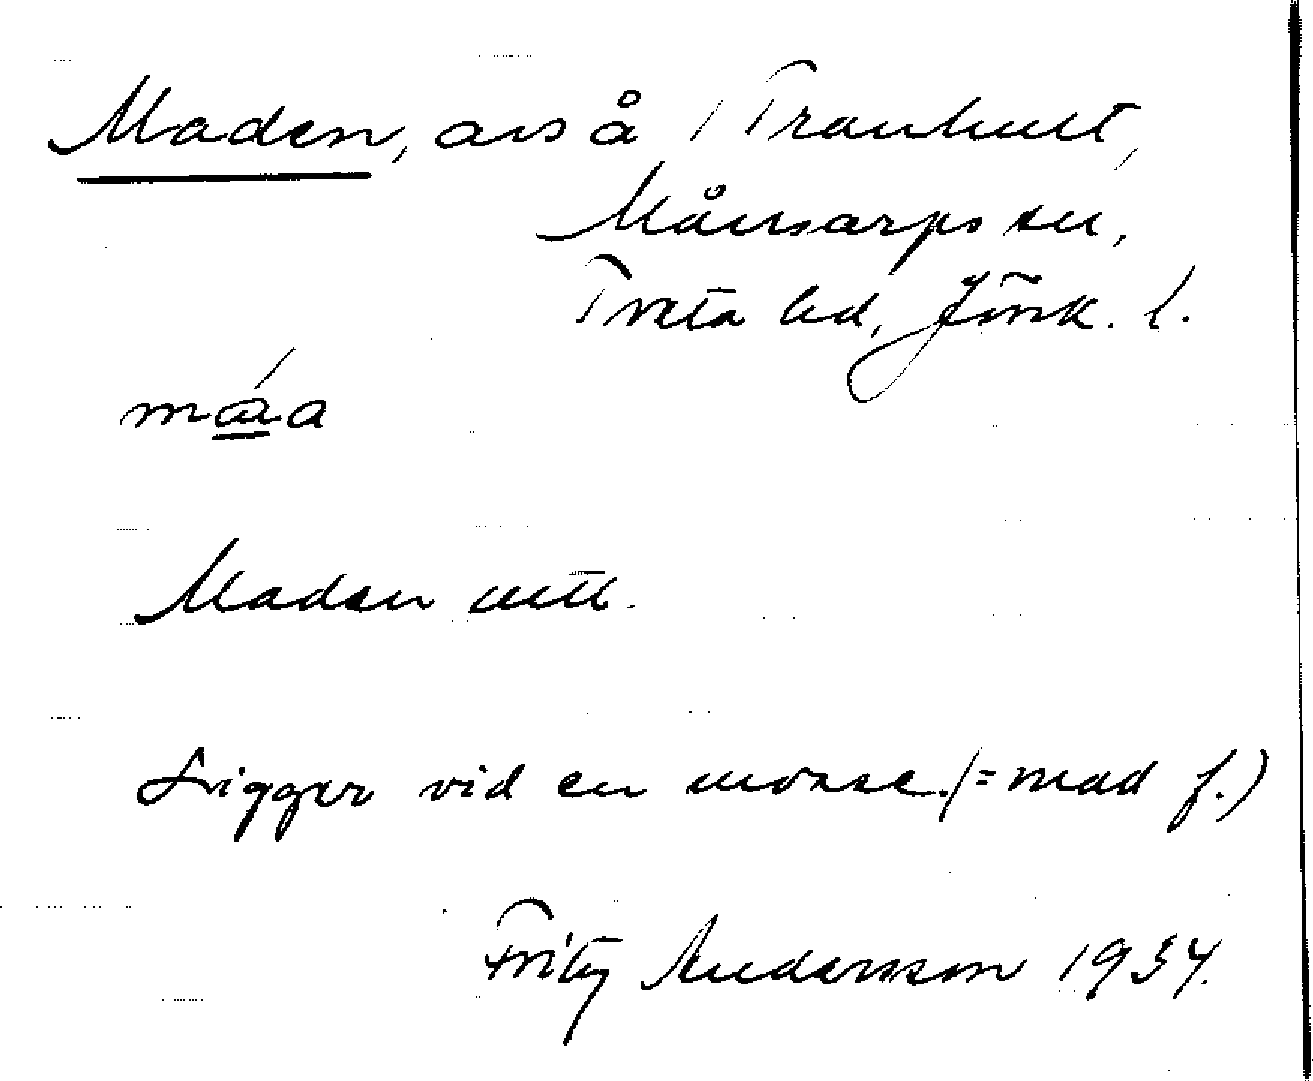 Maden, avs å Tranhult,
Månsarps sn,
Tveta hd, Jönk. l.
Maden
Ligger vid en mosse. (= mad f.)
Fritz Andersson 1934.